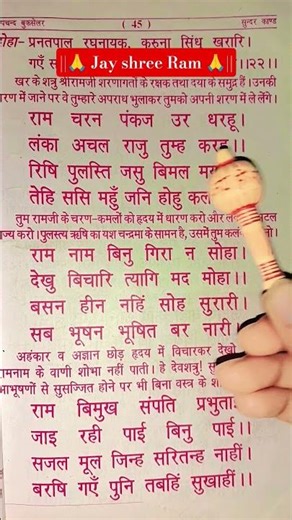 पचन्द बुकसेलर ( 45 ) सुन्दर काण्ड
दोहा– प्रनतपाल रघुनायक, करुना सिंधु खरारि।
🙏 Jay shree Ram 🙏
गएँ ।।२२।।
खर के शत्रु श्रीरामजी शरणागतों के रक्षक तथा दया के समुद्र हैं। उनकी
रण में जाने पर वे तुम्हारे अपराध भुलाकर तुमको अपनी शरण में ले लेंगे।
राम चरन पंकज उर धरहू।
लंका अचल राजु तुम्ह ।।
रिषि पुलस्ति जसु बिमल
तेहि ससि महुँ जनि होहु
तुम रामजी के चरण-कमलों को हृदय में धारण करो और
ज्य करो। पुलस्त्य ऋषि का यश चन्द्रमा के सामन है, उसमें तुम
राम नाम बिनु गिरा न सोहा।
देखु बिचारि त्यागि मद मोहा।।
बसन हीन नहिं सोह सुरारी।
सब भूषन भूषित बर नारी।।
अहंकार व अज्ञान छोड़ हृदय में विचारकर देखो
ामनाम के वाणी शोभा नहीं पाती। हे देवशत्रु!
आभूषणों से सुसज्जित होने पर भी बिना वस्त्र के
राम बिमुख संपति प्रभुताई
जाइ रही पाई बिनु पाई।।
सजल मूल जिन्ह सरितन्ह नाहीं।
बरषि गएँ पुनि तबहिं सुखाहीं।।